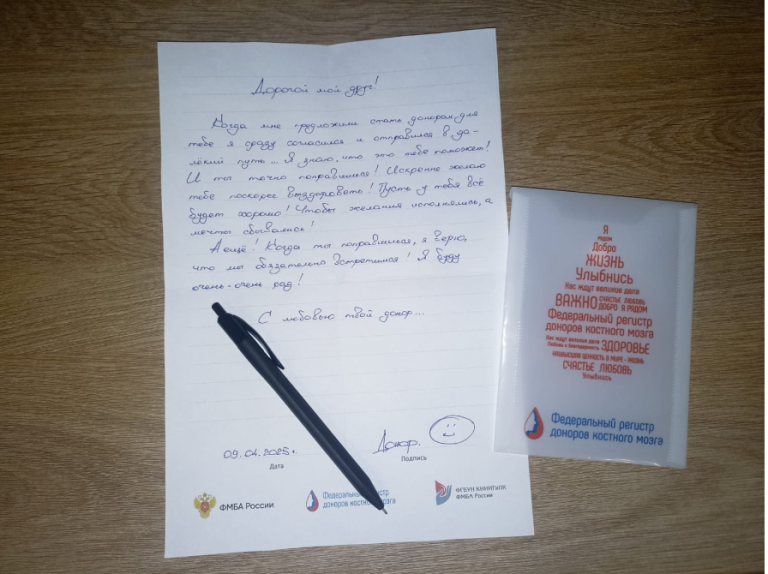 Дорогой мой друг!
Когда мне предложили стать донором для
тебя я сразу согласился и отправился в да-
лёкий путь... Я знаю, что это тебе поможет!
И ты точно поправишься! Искренне желаю
тебе поскорее выздороветь! Пусть у тебя всё
будет хорошо! Чтобы желания исполнялись, а
мечты сбывались!
А ещё! Когда ты поправишься, я верю,
что мы обязательно встретимся! Я буду
очень-очень рад!
С любовью твой донор...
09.04.2025 г. Донор.
Дата Подпись
ФМБА России
Федеральный регистр
доноров костного мозга
ФГБУН КНИИГИПК
ФМБА России
Я
рядом
Добро
ЖИЗНЬ
Улыбнись
Нас ждут великие дела
ВАЖНО СЧАСТЬЕ ЛЮБОВЬ
ДОБРО Я РЯДОМ
Федеральный регистр
доноров костного мозга
Нас ждут великие дела
Любовь и благодарность ЗДОРОВЬЕ
НАИВЫСШАЯ ЦЕННОСТЬ В МИРЕ - ЖИЗНЬ
СЧАСТЬЕ ЛЮБОВЬ
Улыбнись
Федеральный регистр
доноров костного мозга